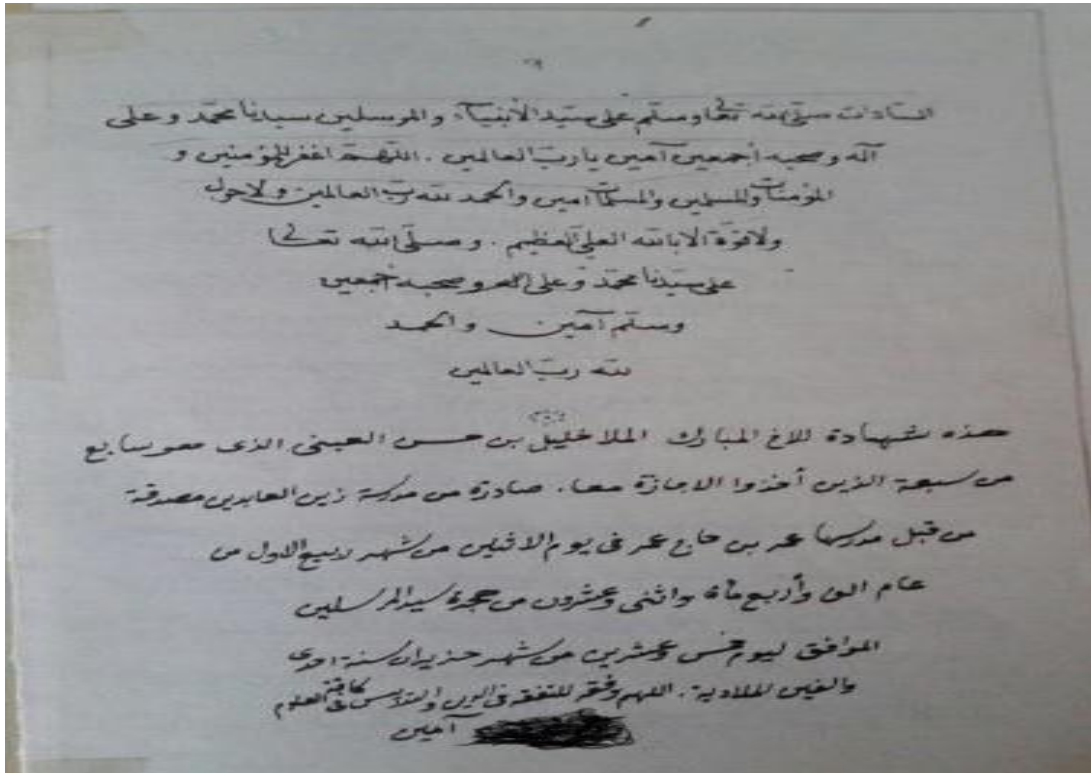 ٢٩
السادات صلى الله تعالى وسلم على سيد الأنبياء والمرسلين سيدنا محمد وعلى
آله وصحبه أجمعين آمين يا رب العالمين . اللهم اغفر للمؤمنين و
المؤمنات والمسلمين والمسلمات امين والحمد لله رب العالمين ولا حول
ولا قوة الا بالله العلي العظيم . وصلى الله تعالى
على سيدنا محمد وعلى اله وصحبه اجمعين
وسلم آمين والحمد
لله رب العالمين
هذه شهادة للاخ المبارك الملا خليل بن حسن العيني الذى هو سابع
من سبعة الذين أخذوا الاجازة معا . صادرة من مدرسة زين العابدين مصدقة
من قبل مدرسها عمر بن حاج عمر فى يوم الاثنين من شهر ربيع الاول من
عام الف وأربع مائة واثنى وعشرون من هجرة سيد المرسلين
الموافق ليوم خمس وعشرين من شهر حزيران سنة احدى
والفين للملادية . اللهم وفقه للتفقه فى الدين والتدريس فى كافة العلوم
آمين